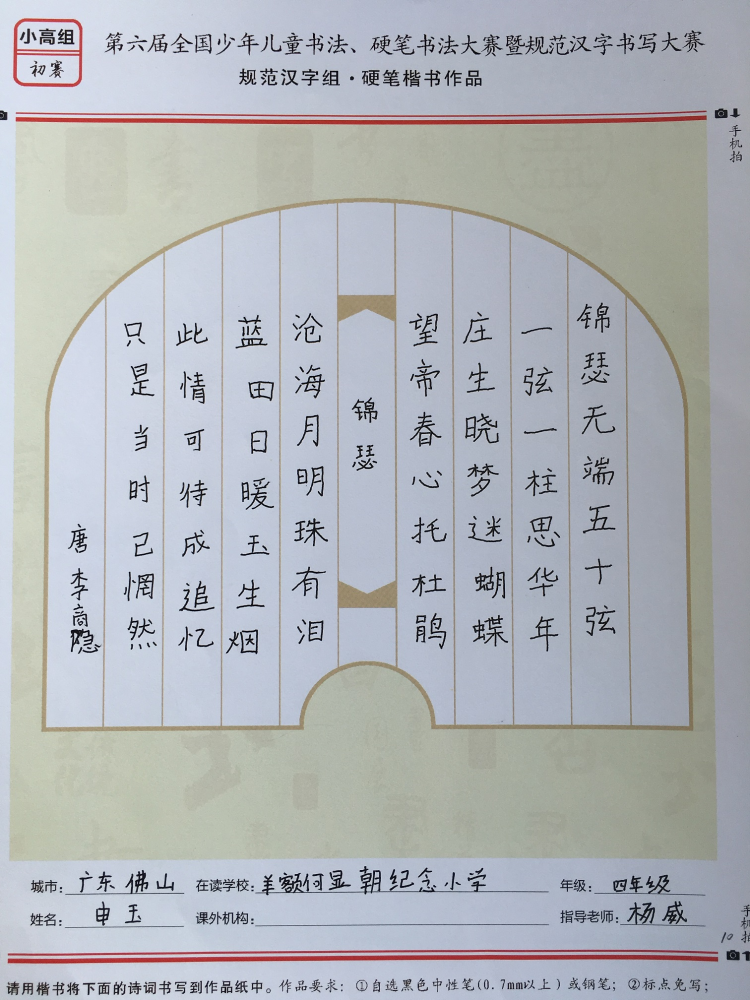 小高组
初赛
第六届全国少年儿童书法、硬笔书法大赛暨规范汉字书写大赛
规范汉字组·硬笔楷书作品
手机拍
锦瑟无端五十弦
一弦一柱思华年
庄生晓梦迷蝴蝶
望帝春心托杜鹃
锦瑟
沧海月明珠有泪
蓝田日暖玉生烟
此情可待成追忆
只是当时已惘然
唐李商隐
城市：广东佛山 在读学校：羊额何显朝纪念小学 年级：四年级
姓名：申玉 课外机构： 指导老师：杨威
手机拍
10
请用楷书将下面的诗词书写到作品纸中。作品要求：①自选黑色中性笔(0.7mm以上)或钢笔；②标点免写；